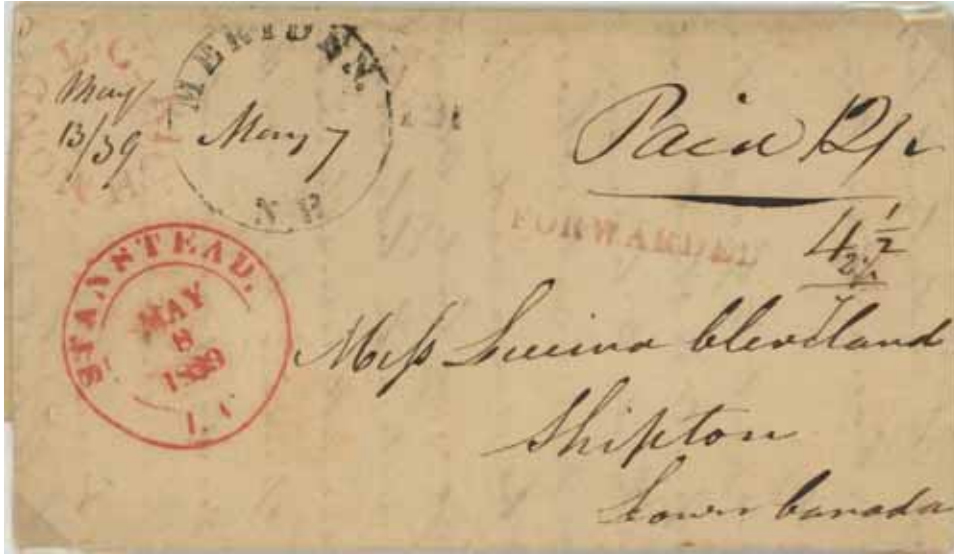 May
13/39
MERIDEN
May 7
N.H
Paid 12½
FORWARDED
4½
STANSTEAD.
MAY
8
1839
L.C
Miss Lucina Cleveland
Shipton
Lower Canada